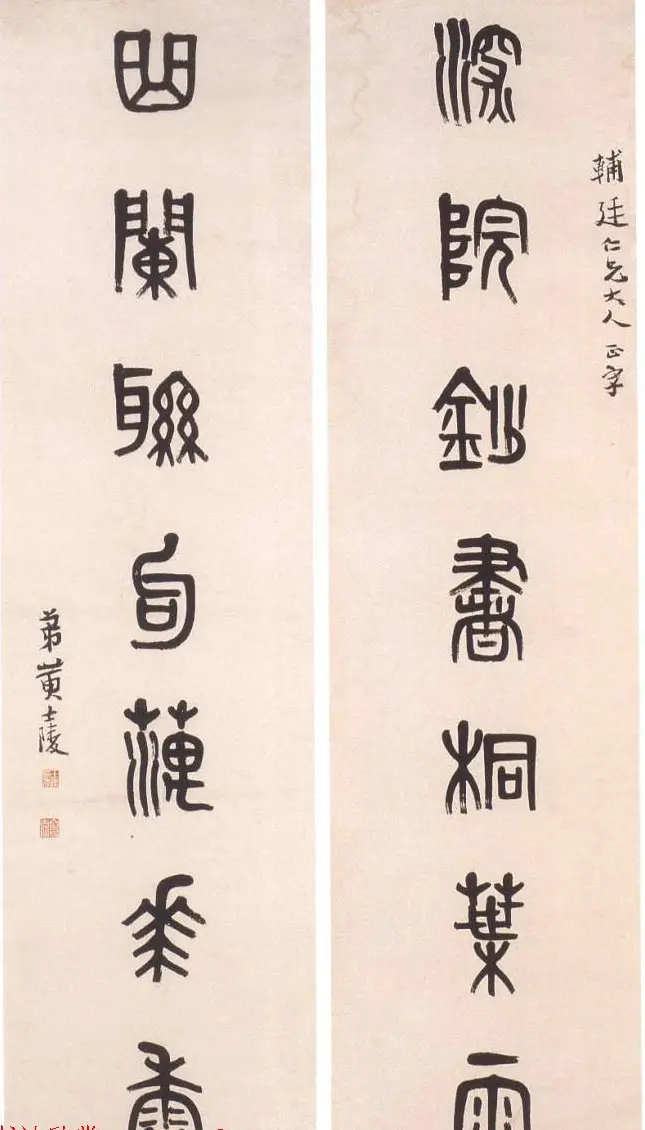 輔廷仁兄大人正字
深院鈔書桐葉雨
曲闌聯句蓮花香
弟黃士陵